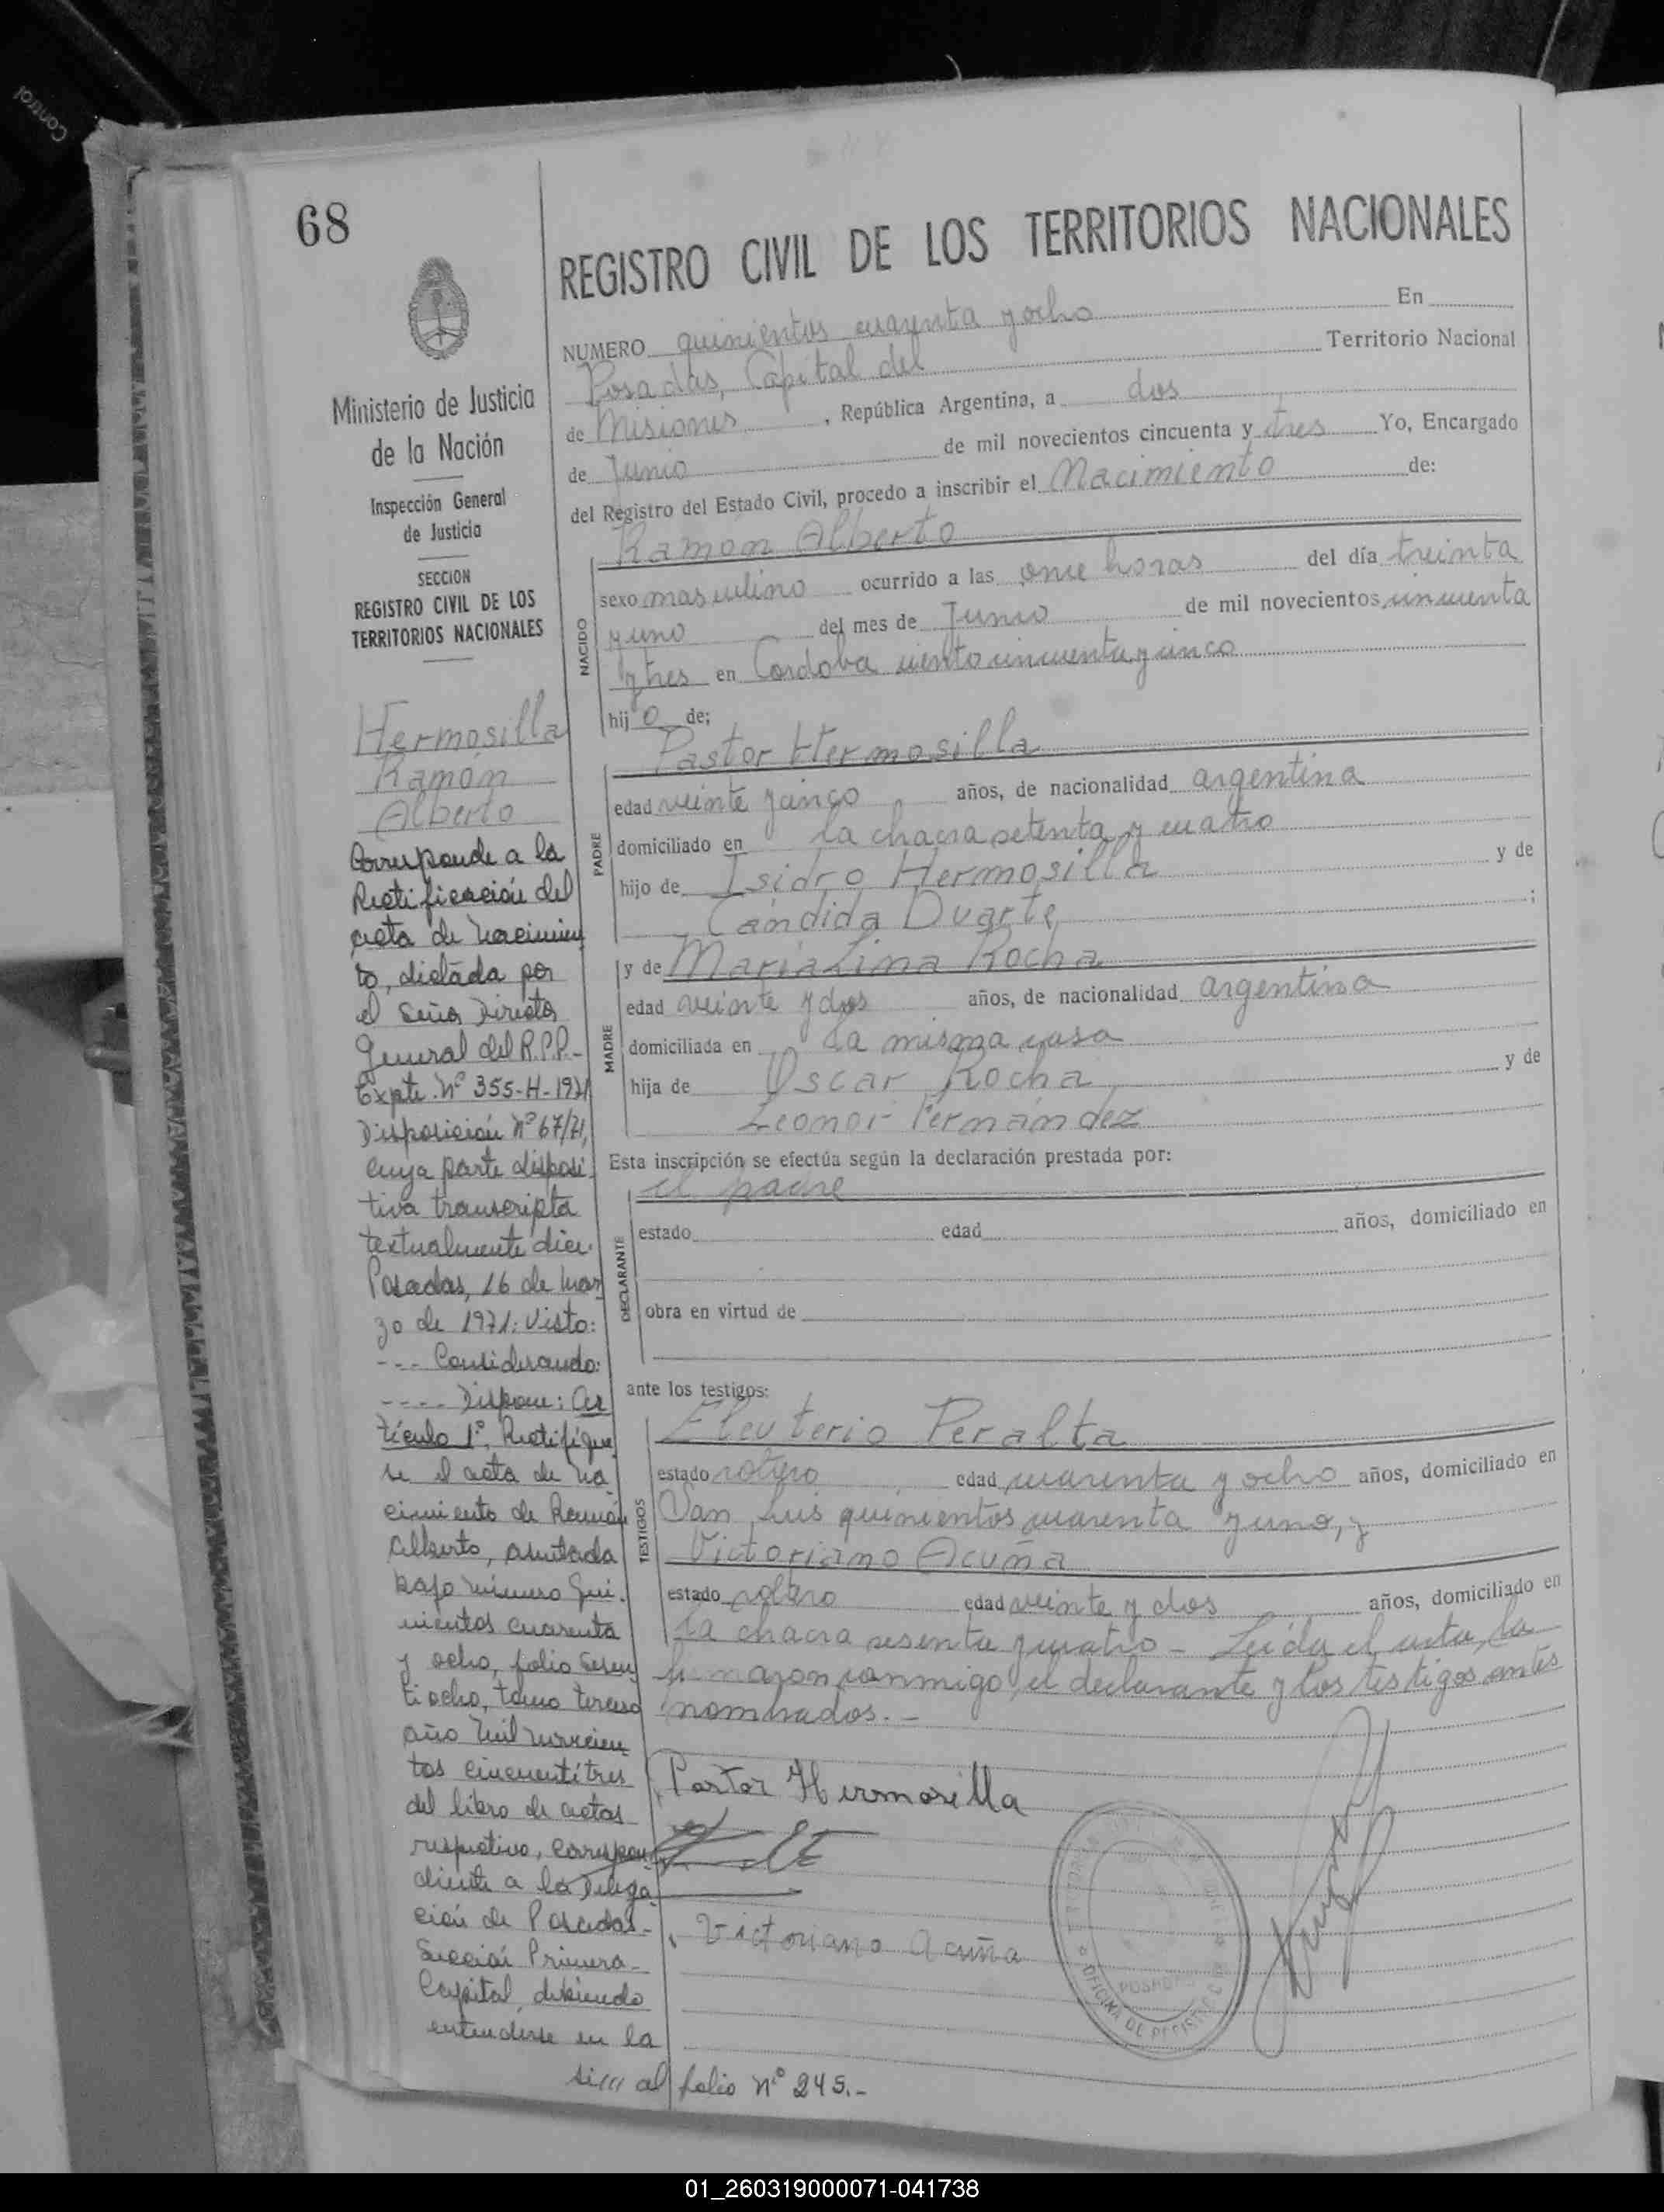 Control
68
REGISTRO CIVIL DE LOS TERRITORIOS NACIONALES
NUMERO quinientos cuarenta y ocho En
Posadas, Capital del Territorio Nacional
de Misiones, República Argentina, a dos
de Junio de mil novecientos cincuenta y tres Yo, Encargado
del Registro del Estado Civil, procedo a inscribir el Nacimiento de:
Ramón Alberto
NACIDO
sexo masculino ocurrido a las once horas del día treinta
y uno del mes de Junio de mil novecientos cincuenta
y tres en Cordoba ciento cincuenta y cinco
hijo de;
Pastor Hermosilla
PADRE
edad veinte y cinco años, de nacionalidad argentina
domiciliado en la chacra setenta y cuatro
hijo de Isidro Hermosilla y de
Cándida Duarte ;
y de María Lina Rocha
MADRE
edad veinte y dos años, de nacionalidad argentina
domiciliada en la misma casa
hija de Oscar Rocha y de
Leonor Fernández
Esta inscripción se efectúa según la declaración prestada por:
el padre
DECLARANTE
estado edad años, domiciliado en
obra en virtud de
ante los testigos:
Eleuterio Peralta
TESTIGOS
estado soltero edad cuarenta y ocho años, domiciliado en
San Luis quinientos cuarenta y uno, y
Victoriano Acuña
estado soltero edad veinte y dos años, domiciliado en
la chacra sesenta y cuatro - Leída el acta, la
firmaron conmigo, el declarante y los testigos antes
nombrados.-
Pastor Hermosilla
Victoriano Acuña
OFICINA DE REGISTRO
POSADAS
Ministerio de Justicia
de la Nación
Inspección General
de Justicia
SECCION
REGISTRO CIVIL DE LOS
TERRITORIOS NACIONALES
Hermosilla
Ramón
Alberto
Corresponde a la
Rectificación del
acta de Nacimien
to, dictada por
el Señor Director
General del R.P.P.-
Expte. Nº 355-H-1971
Disposición Nº 67/71,
cuya parte disposi
tiva transcripta
textualmente dice:
Posadas, 16 de Mar
zo de 1971: Visto:
--- Considerando:
---- Dispone: Ar
tículo 1º. Rectifíque
se el acta de na
cimiento de Ramón
Alberto, asentada
bajo número qui-
nientos cuarenta
y ocho, folio sesen
ti ocho, tomo tercero
año mil novecien
tos cincuentitres
del libro de actas
respectivo, correspon
diente a la Delega
ción de Posadas-
Sección Primera-
Capital, debiendo
entenderse en la
si/// al folio nº 245.-
01_260319000071-041738